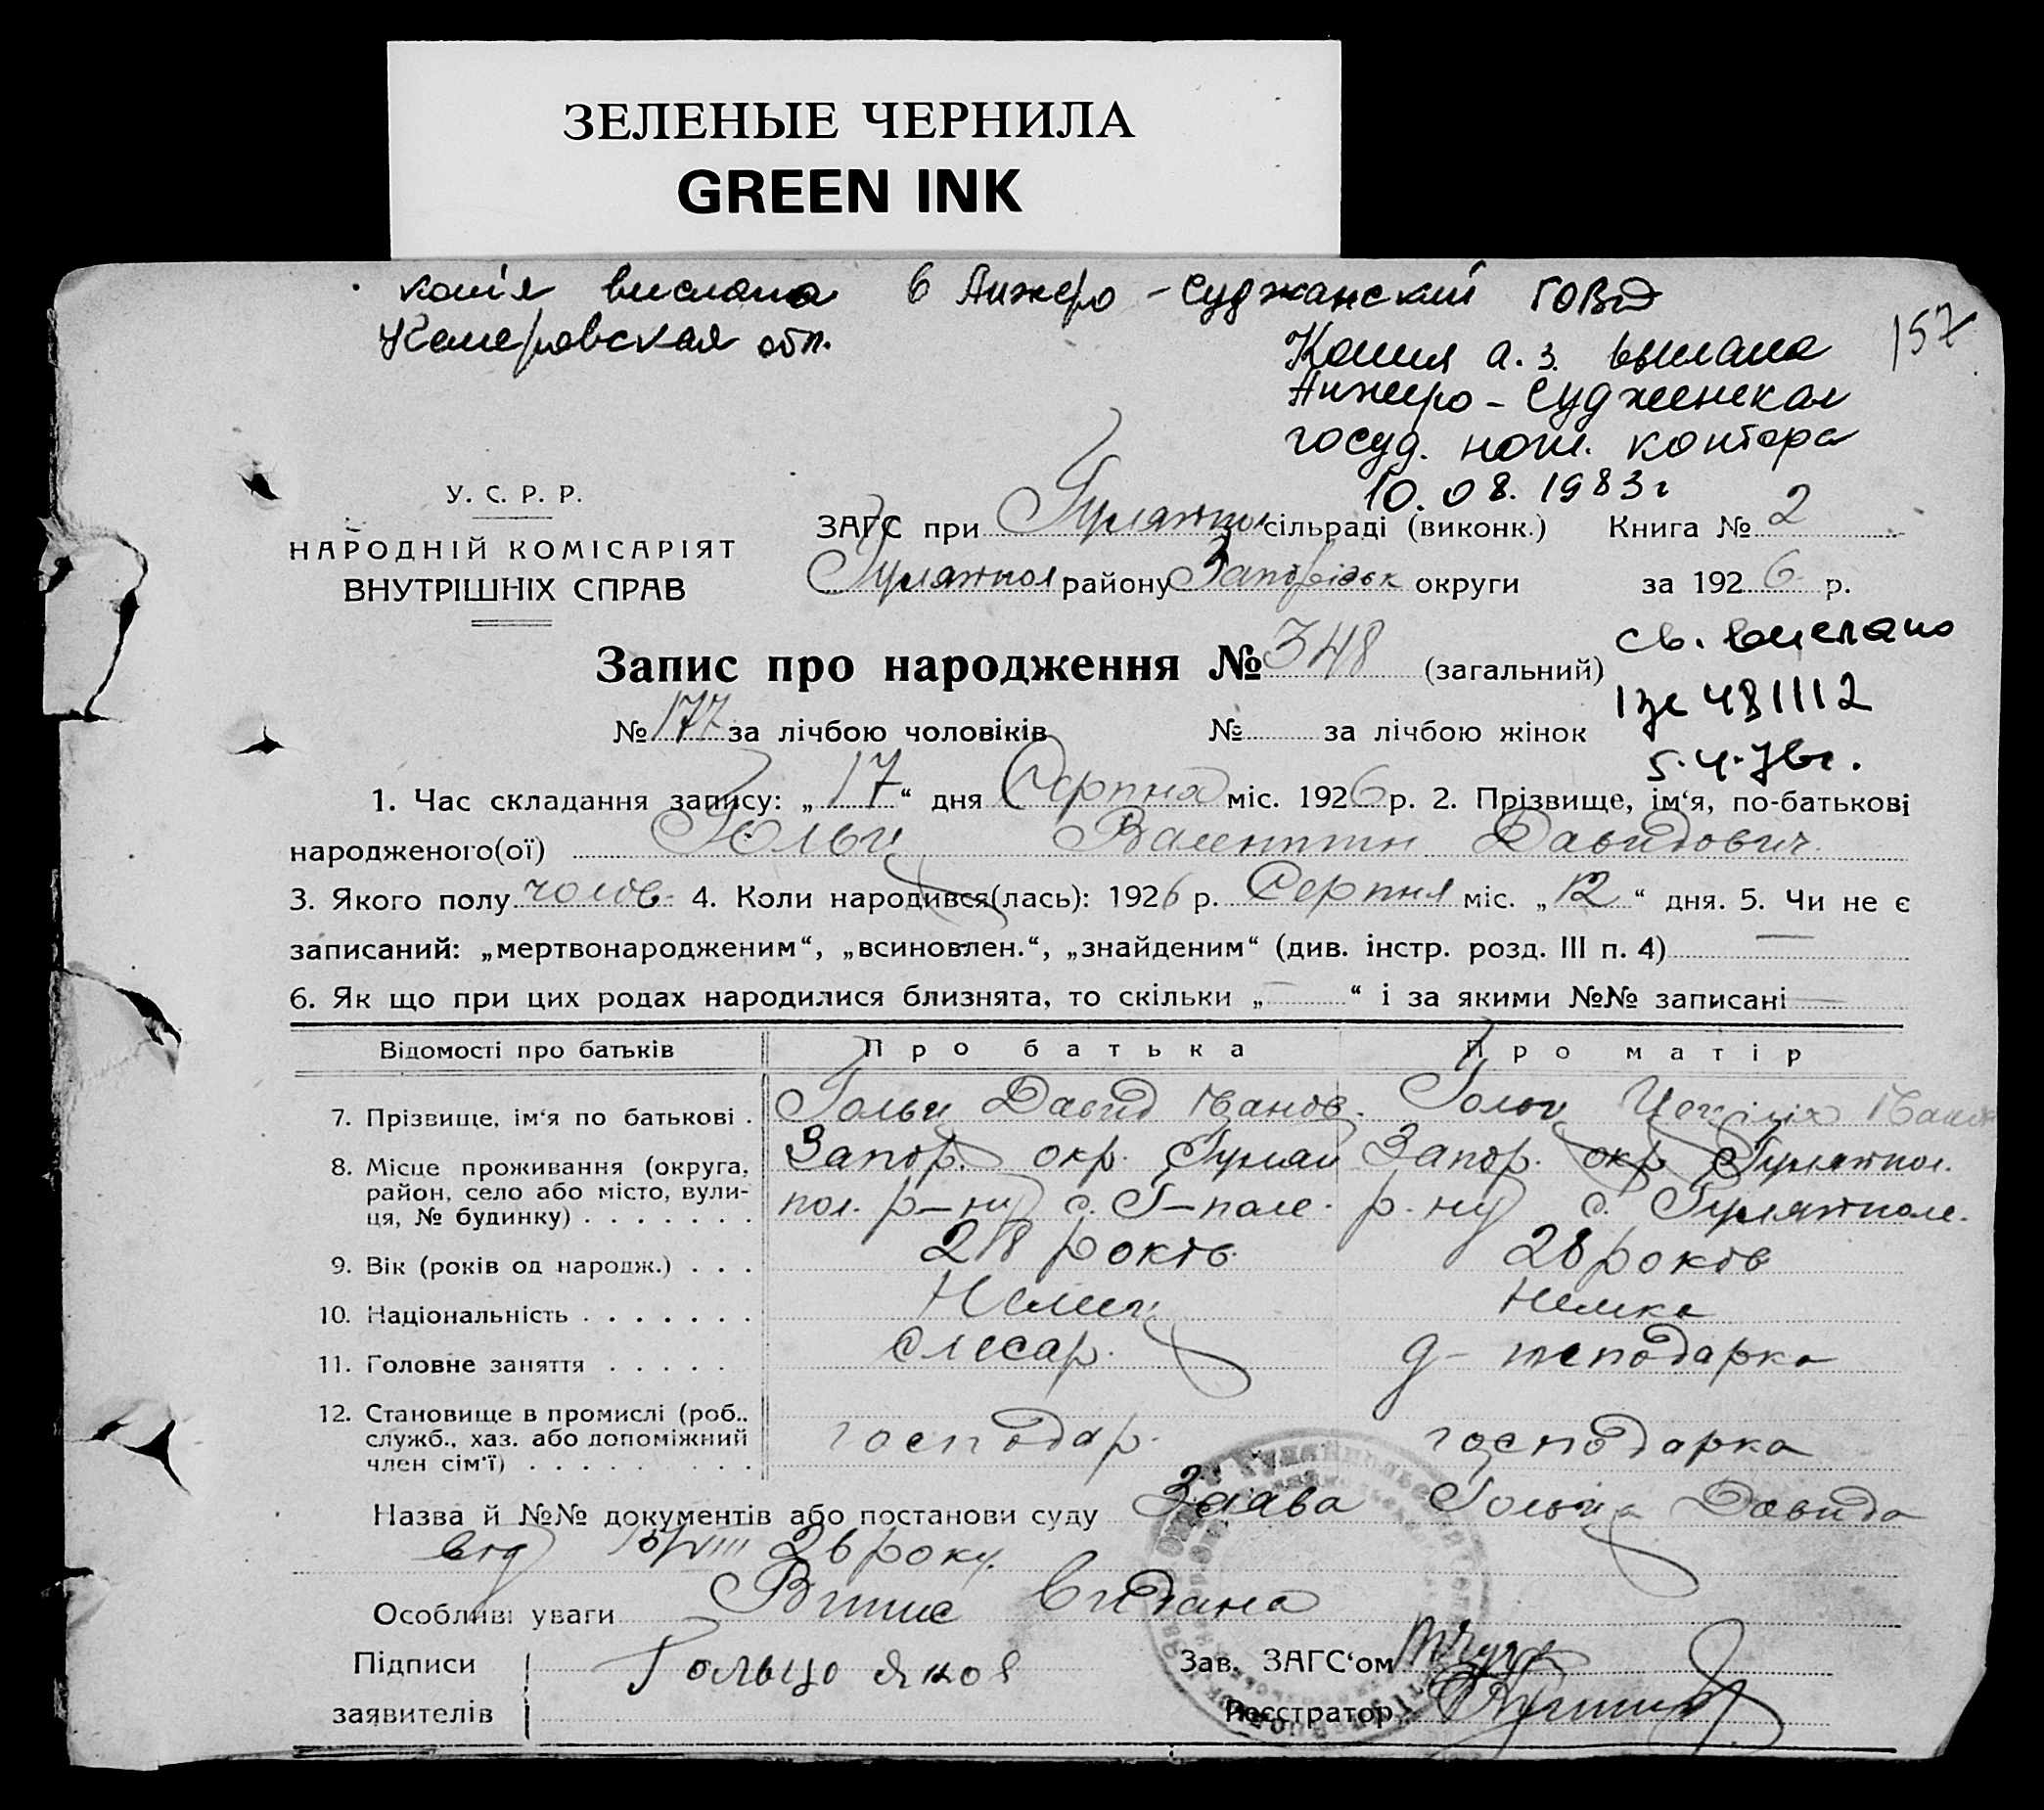 ЗЕЛЕНЫЕ ЧЕРНИЛА
GREEN INK
копія вислана в Анжеро-Суджанский ГОВД
Кемеровская обл.
157
Копия а.з. выслана
Анжеро-Судженская
госуд. нот. контора
10.08.1983г
У. С. Р. Р.
НАРОДНІЙ КОМІСАРІЯТ
ВНУТРІШНІХ СПРАВ
ЗАГС при Гуляйпол сільраді (виконк.) Книга № 2
Гуляйпол району Запорізьк округи за 1926 р.
св. вислано
Запис про народження № 348 (загальний)
481112
№ 177 за лічбою чоловіків № за лічбою жінок
5.4.76г.
1. Час складання запису: „17“ дня Серпня міс. 1926 р. 2. Прізвище, ім‘я, по-батькові
народженого(ої) Гольц Валентин Давидович
3. Якого полу чолов. 4. Коли народився(лась): 1926 р. Серпня міс. „12“ дня. 5. Чи не є
записаний: „мертвонародженим“, „всиновлен.“, „знайденим“ (див. інстр. розд. III п. 4) —
6. Як що при цих родах народилися близнята, то скільки „—“ і за якими №№ записані —
Відомості про батьків Про батька Про матір
7. Прізвище, ім‘я по батькові . Гольц Давид Іванов. Гольц Іван
8. Місце проживання (округа, Запор. окр. Гуляй Запор. окр. Гуляйпол.
район, село або місто, вули- пол. р-ну с. Г-поле. р-ну с. Гуляйполе.
ця, № будинку) . . . . . . .
9. Вік (років од народж.) . . . 28 років. 28 років
10. Національність . . . . . . . Немець Немка
11. Головне заняття . . . . . слесар. д-господарка
12. Становище в промислі (роб.. господар. господарка
служб., хаз. або допоміжний
член сім‘ї) . . . . . . . . .
Назва й №№ документів або постанови суду Заява Гольца Давида
від /VIII 26 року.
Особливі уваги Випис видана
Підписи Гольцо Яков Зав. ЗАГС‘ом
заявителів Реєстратор